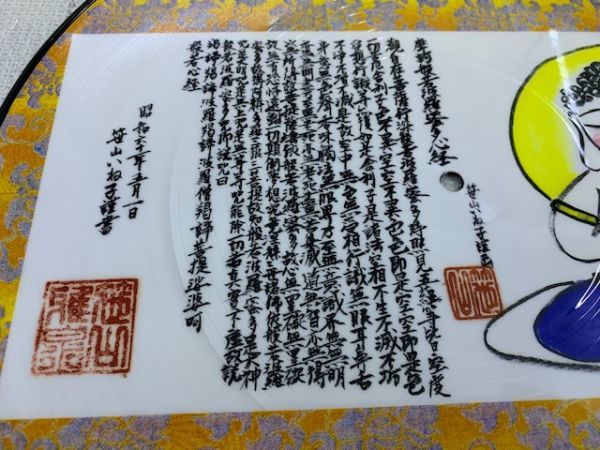 笹山いね子謹画
摩訶般若波羅蜜多心経
観自在菩薩行深般若波羅蜜多時照見五蘊皆空度
一切苦厄舎利子色不異空空不異色色即是空空即是色
受想行識亦復如是舎利子是諸法空相不生不滅不垢
不浄不増不減是故空中無色無受想行識無眼耳鼻舌
身意無色声香味触法無眼界乃至無意識界無無明
亦無無明尽乃至無老死亦無老死尽無苦集滅道無智亦無得
以無所得故菩提薩埵依般若波羅蜜多故心無罣礙無罣礙
故無有恐怖遠離一切顛倒夢想究竟涅槃三世諸仏依般若波羅
蜜多故得阿耨多羅三藐三菩提故知般若波羅蜜多是大神
呪是大明呪是無上呪是無等等呪能除一切苦真実不虚故説
般若波羅蜜多呪即説呪曰
羯諦羯諦波羅羯諦波羅僧羯諦菩提娑婆訶
般若心経
昭和六二年五月一日
笹山いね子謹書